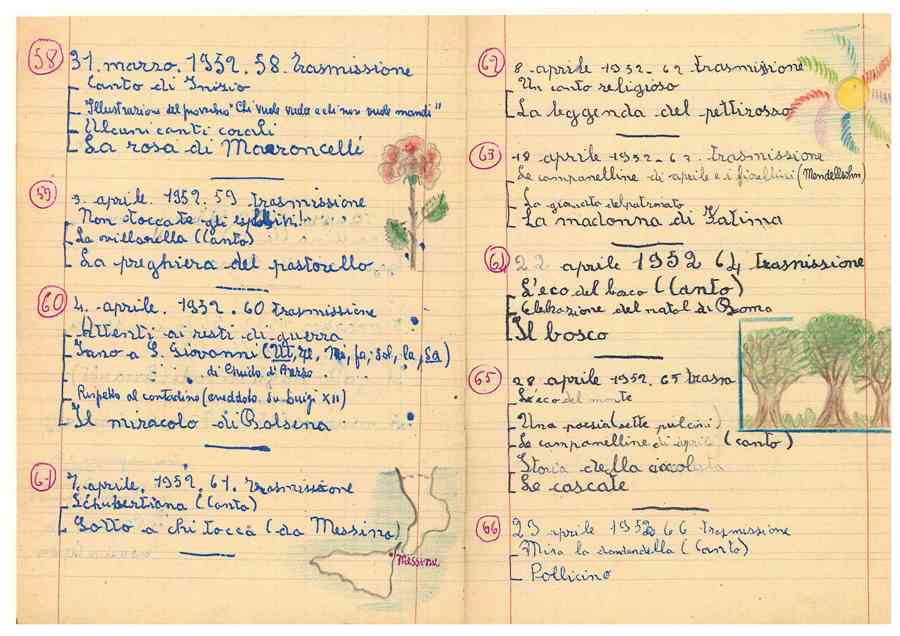 58 31. marzo. 1952. 58. trasmissione
Canto di Inizio
"Illustrazione del proverbio "Chi vuole vada e chi non vuole mandi"
Alcuni canti corali
La rosa di Maroncelli
59 3. aprile. 1952. 59 trasmissione
Non toccate gli esplosivi!
La villanella (Canto)
La preghiera del pastorello
60 4. aprile. 1952. 60 trasmissione
Attenti ai resti di guerra
Inno a S. Giovanni (Ut, re, mi, fa, sol, la, sa)
di Guido d'Arezzo
Rispetto al contadino (aneddoto su Luigi XII)
Il miracolo di Bolsena
61 7. aprile. 1952. 61. trasmissione
Schubertiana (Canto)
Sotto a chi tocca (da Messina)
Messina
62 8 aprile 1952. 62 trasmissione
Un canto religioso
La leggenda del pettirosso
63 18 aprile 1952. 63. trasmissione
Le campanelline di aprile e i fiorellini (Mendelssohn)
La giornata del patronato
La madonna di Fatima
64 22 aprile 1952 64 trasmissione
L'eco del bosco (Canto)
Celebrazione del natal di Roma
Il bosco
65 28 aprile 1952. 65 trasm
L'eco del monte
Una poesia (sette pulcini)
Le campanelline di aprile (canto)
Storia della cioccolata
Le cascate
66 29 aprile 1952 66 trasmissione
Mira la dondondella (Canto)
Pollicino